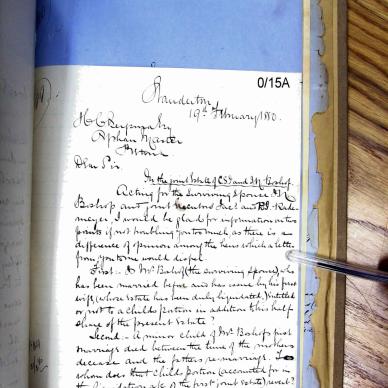 0/15A
Standerton
19th February 1880.
H C Bergsma Esq
Orphan Master
Dear Sir
In the joint Estate of C S J and M Bishop.
Acting for the surviving spouse Mr
Bishop and joint Executors
meyer, I would be glad for information on two
points if not troubling you too much as there is a
difference of opinion among the heirs which a letter
from you to me would dispel.
First. Is Mr Bishop (the surviving spouse), who
has been married before and has issue by his first
wife, (whose Estate has been duly liquidated,) entitled
or not to a child's portion in addition to his half
share of the present Estate?
Second. A minor child of Mr Bishop's first
marriage died between the time of the mother's
decease and the father's re-marriage. To
whom does that child's portion (accounted for in
the liquidation a/c of the first joint Estate) revert